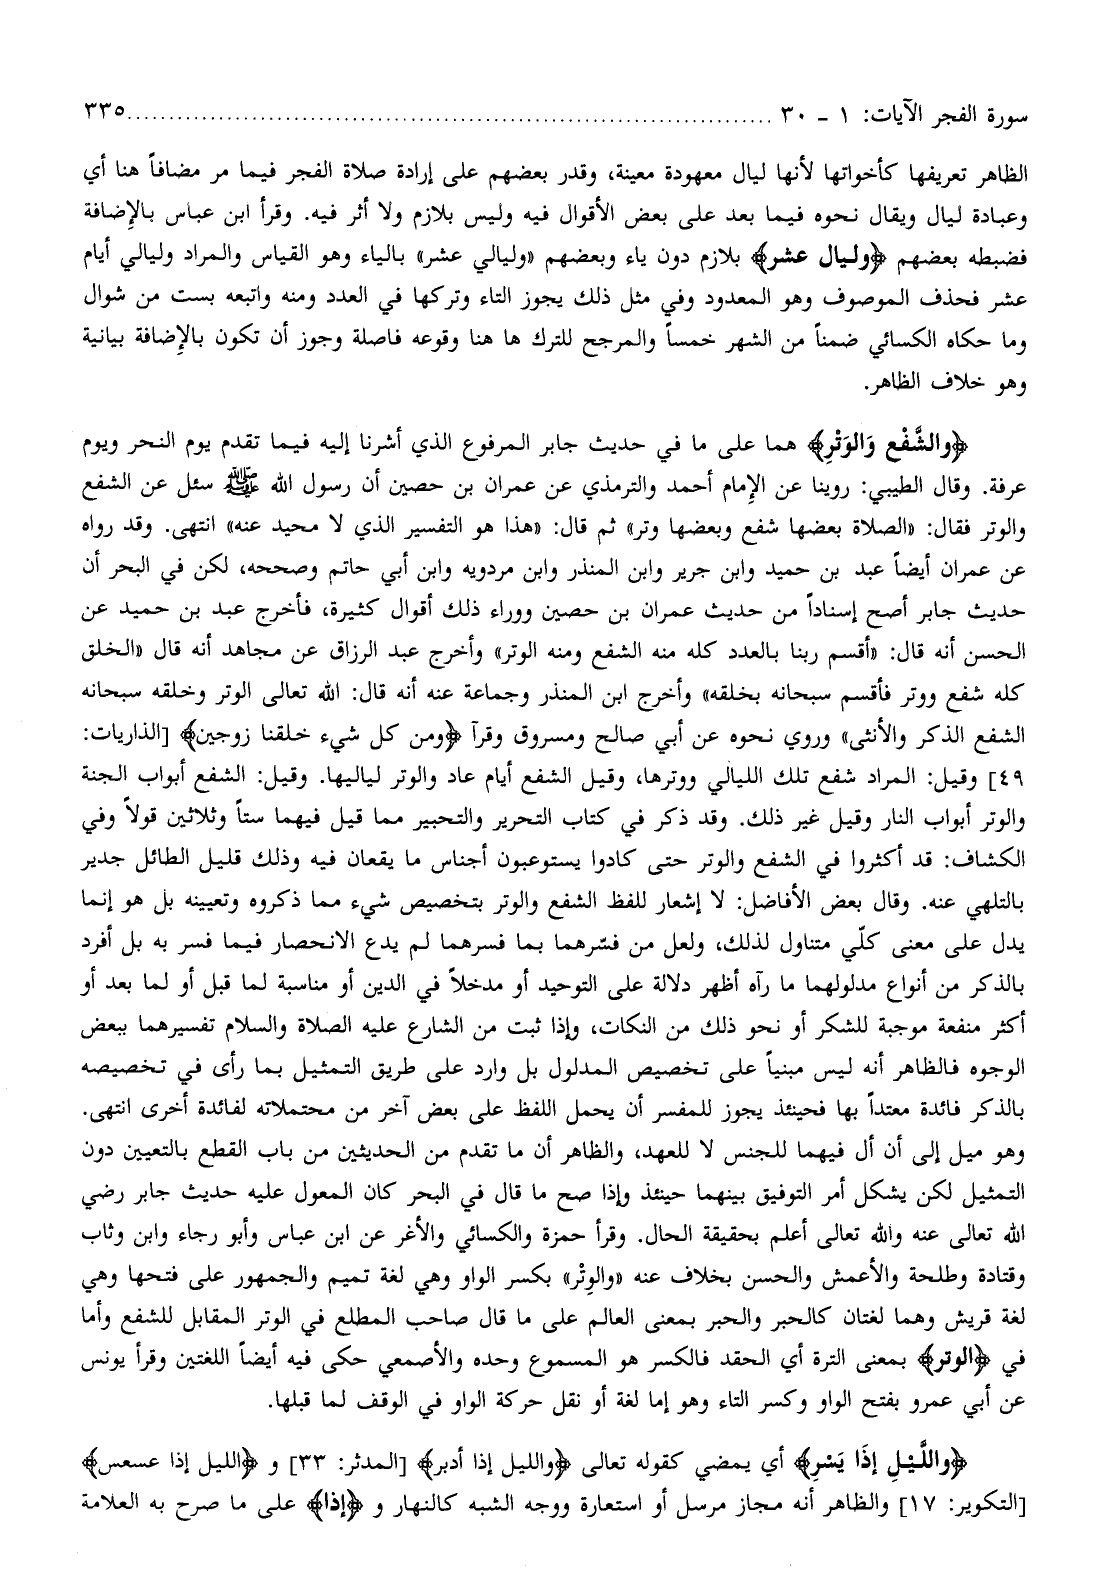 سورة الفجر الآيات: ١ - ٣٠ ................................................................ ٣٣٥
الظاهر تعريفها كأخواتها لأنها ليال معهودة معينة، وقدر بعضهم على إرادة صلاة الفجر فيما مر مضافاً هنا أي
وعبادة ليال ويقال نحوه فيما بعد على بعض الأقوال فيه وليس بلازم ولا أثر فيه. وقرأ ابن عباس بالإِضافة
فضبطه بعضهم ﴿وليال عشر﴾ بلازم دون ياء وبعضهم «وليالي عشر» بالياء وهو القياس والمراد وليالي أيام
عشر فحذف الموصوف وهو المعدود وفي مثل ذلك يجوز التاء وتركها في العدد ومنه واتبعه بست من شوال
وما حكاه الكسائي ضمناً من الشهر خمساً والمرجح للترك ها هنا وقوعه فاصلة وجوز أن تكون بالإِضافة بيانية
وهو خلاف الظاهر.
﴿والشَّفْع وَالوَتْرِ﴾ هما على ما في حديث جابر المرفوع الذي أشرنا إليه فيما تقدم يوم النحر ويوم
عرفة. وقال الطيبي: روينا عن الإِمام أحمد والترمذي عن عمران بن حصين أن رسول الله ﷺ سئل عن الشفع
والوتر فقال: «الصلاة بعضها شفع وبعضها وتر» ثم قال: «هذا هو التفسير الذي لا محيد عنه» انتهى. وقد رواه
عن عمران أيضاً عبد بن حميد وابن جرير وابن المنذر وابن مردويه وابن أبي حاتم وصححه، لكن في البحر أن
حديث جابر أصح إسناداً من حديث عمران بن حصين ووراء ذلك أقوال كثيرة، فأخرج عبد بن حميد عن
الحسن أنه قال: «أقسم ربنا بالعدد كله منه الشفع ومنه الوتر» وأخرج عبد الرزاق عن مجاهد أنه قال «الخلق
كله شفع ووتر فأقسم سبحانه بخلقه» وأخرج ابن المنذر وجماعة عنه أنه قال: الله تعالى الوتر وخلقه سبحانه
الشفع الذكر والأنثى» وروي نحوه عن أبي صالح ومسروق وقرآ ﴿ومن كل شيء خلقنا زوجين﴾ [الذاريات:
٤٩] وقيل: المراد شفع تلك الليالي ووترها، وقيل الشفع أيام عاد والوتر لياليها. وقيل: الشفع أبواب الجنة
والوتر أبواب النار وقيل غير ذلك. وقد ذكر في كتاب التحرير والتحبير مما قيل فيهما ستاً وثلاثين قولاً وفي
الكشاف: قد أكثروا في الشفع والوتر حتى كادوا يستوعبون أجناس ما يقعان فيه وذلك قليل الطائل جدير
بالتلهي عنه. وقال بعض الأفاضل: لا إشعار للفظ الشفع والوتر بتخصيص شيء مما ذكروه وتعيينه بل هو إنما
يدل على معنى كلّي متناول لذلك، ولعل من فسّرهما بما فسرهما لم يدع الانحصار فيما فسر به بل أفرد
بالذكر من أنواع مدلولهما ما رآه أظهر دلالة على التوحيد أو مدخلاً في الدين أو مناسبة لما قبل أو لما بعد أو
أكثر منفعة موجبة للشكر أو نحو ذلك من النكات، وإذا ثبت من الشارع عليه الصلاة والسلام تفسيرهما ببعض
الوجوه فالظاهر أنه ليس مبنياً على تخصيص المدلول بل وارد على طريق التمثيل بما رأى في تخصيصه
بالذكر فائدة معتداً بها فحينئذ يجوز للمفسر أن يحمل اللفظ على بعض آخر من محتملاته لفائدة أخرى انتهى.
وهو ميل إلى أن أل فيهما للجنس لا للعهد، والظاهر أن ما تقدم من الحديثين من باب القطع بالتعيين دون
التمثيل لكن يشكل أمر التوفيق بينهما حينئذ وإذا صح ما قال في البحر كان المعول عليه حديث جابر رضي
الله تعالى عنه والله تعالى أعلم بحقيقة الحال. وقرأ حمزة والكسائي والأغر عن ابن عباس وأبو رجاء وابن وثاب
وقتادة وطلحة والأعمش والحسن بخلاف عنه «والوِتْر» بكسر الواو وهي لغة تميم والجمهور على فتحها وهي
لغة قريش وهما لغتان كالحبر والحبر بمعنى العالم على ما قال صاحب المطلع في الوتر المقابل للشفع وأما
في ﴿الوتر﴾ بمعنى الترة أي الحقد فالكسر هو المسموع وحده والأصمعي حكى فيه أيضاً اللغتين وقرأ يونس
عن أبي عمرو بفتح الواو وكسر التاء وهو إما لغة أو نقل حركة الواو في الوقف لما قبلها.
﴿واللَّيْلِ إذَا يَسْرِ﴾ أي يمضي كقوله تعالى ﴿والليل إذا أدبر﴾ [المدثر: ٣٣] و ﴿الليل إذا عسعس﴾
[التكوير: ١٧] والظاهر أنه مجاز مرسل أو استعارة ووجه الشبه كالنهار و ﴿إذا﴾ على ما صرح به العلامة